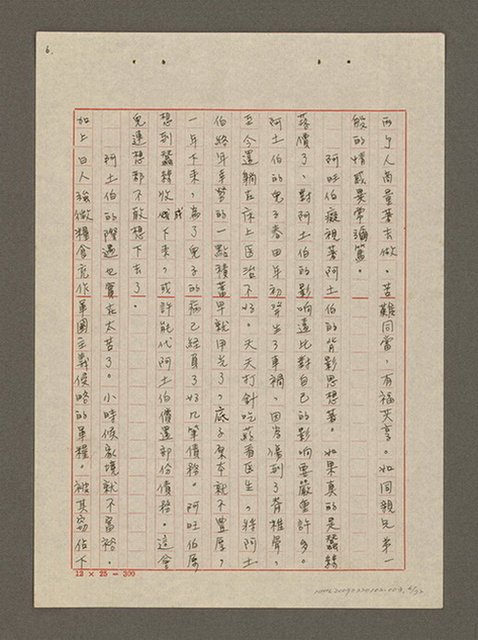 6.
兩個人商量著去做。苦難同當，有福共享。如同親兄弟一
般的情感異常濃篤。
阿旺伯癡視著阿土伯的背影思想著。如果真的是蠶絲
落價了，對阿土伯的影響遠比對自己的影響要嚴重許多。
阿土伯的兒子春田年初發生了車禍，因害傷到了脊椎骨，
至今還躺在床上医治不好。天天打針吃葯看医生，將阿土
伯終年辛勞的一點積蓄早就用光了，底子原本就不豐厚，
一年下來，為了兒子的病已經負了好几筆債務。阿旺伯原
想到蠶絲收成下來，或許能代阿土伯償還部份債務。這會
兒連想都不敢想下去了。
阿土伯的際遇也實在太苦了。小時候家境就不富裕。
加上日人強徵糧食充作軍國主義侵略的軍糧。被其窃佔下
12 × 25 = 300